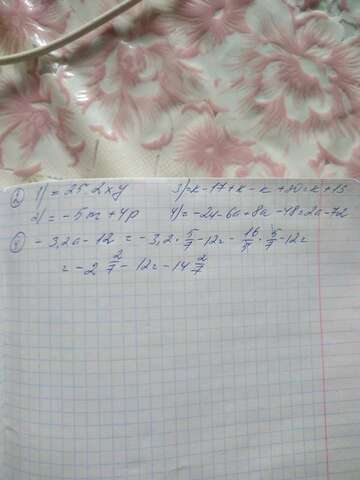 ② 1) = 25,2xy 3) = k - 17 + k - k + 30 = k + 13
2) = -5m + 4p 4) = -24 - 6a + 8a - 48 = 2a - 72
③ - 3,2a - 12 = -3,2 · 5/7 - 12 = - 16/5 · 5/7 - 12 =
= -2 2/7 - 12 = -14 2/7